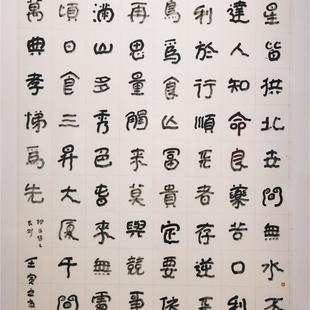 星皆拱北世間無水不
達人知命良藥苦口利
利於行順天者存逆天
鳥為食亡富貴定要依
再思量觸來莫與競事
滿山多秀色春來無處
頃日食三昇大廈千間
萬典孝悌為先
壬寅